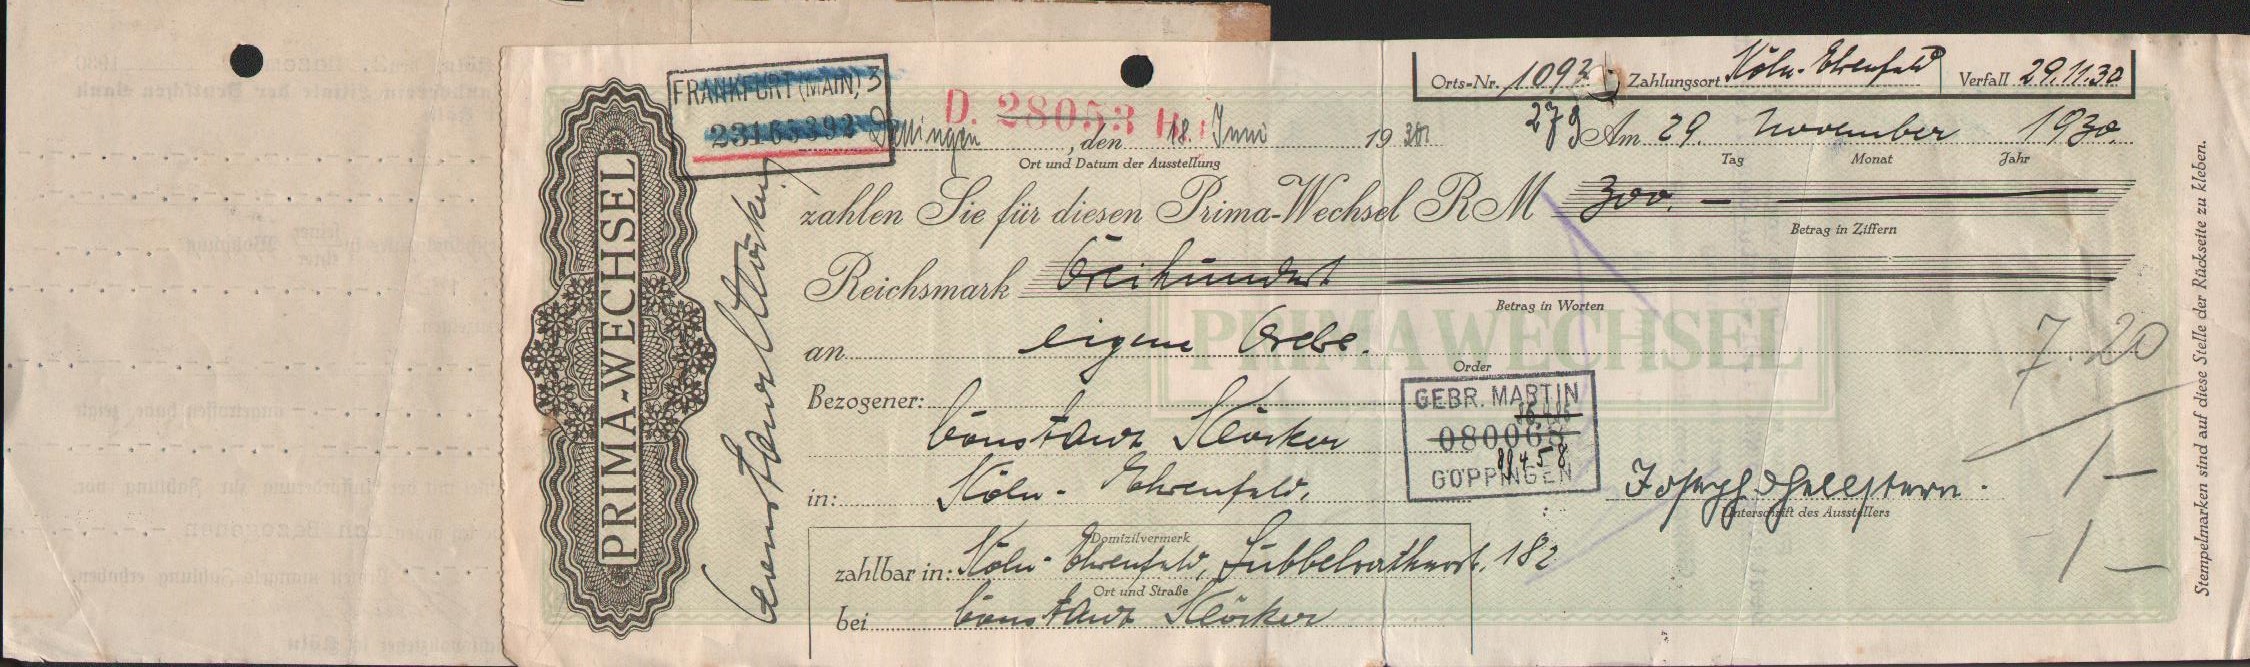 FRANKFURT (MAIN) 3
23165392
Orts=Nr. 1093 Zahlungsort Köln-Ehrenfeld Verfall 29.11.30
D. 28053
, den 18. Juni 1930
Ort und Datum der Ausstellung
279 Am 29. November 1930.
Tag Monat Jahr
zahlen Sie für diesen Prima-Wechsel RM 300.–
Betrag in Ziffern
Reichsmark Dreihundert
Betrag in Worten
PRIMAWECHSEL
an eigene Ordre.
Order
7.20
Bezogener:
Constanz Klöcker
in: Köln-Ehrenfeld.
GEBR. MARTIN
080068
89458
GÖPPINGEN
Unterschrift des Ausstellers
Domizilvermerk
zahlbar in: Köln-Ehrenfeld, Subbelratherst. 182
Ort und Straße
bei Constanz Klöcker
PRIMA-WECHSEL
Constanz Klöcker
Stempelmarken sind auf diese Stelle der Rückseite zu kleben.